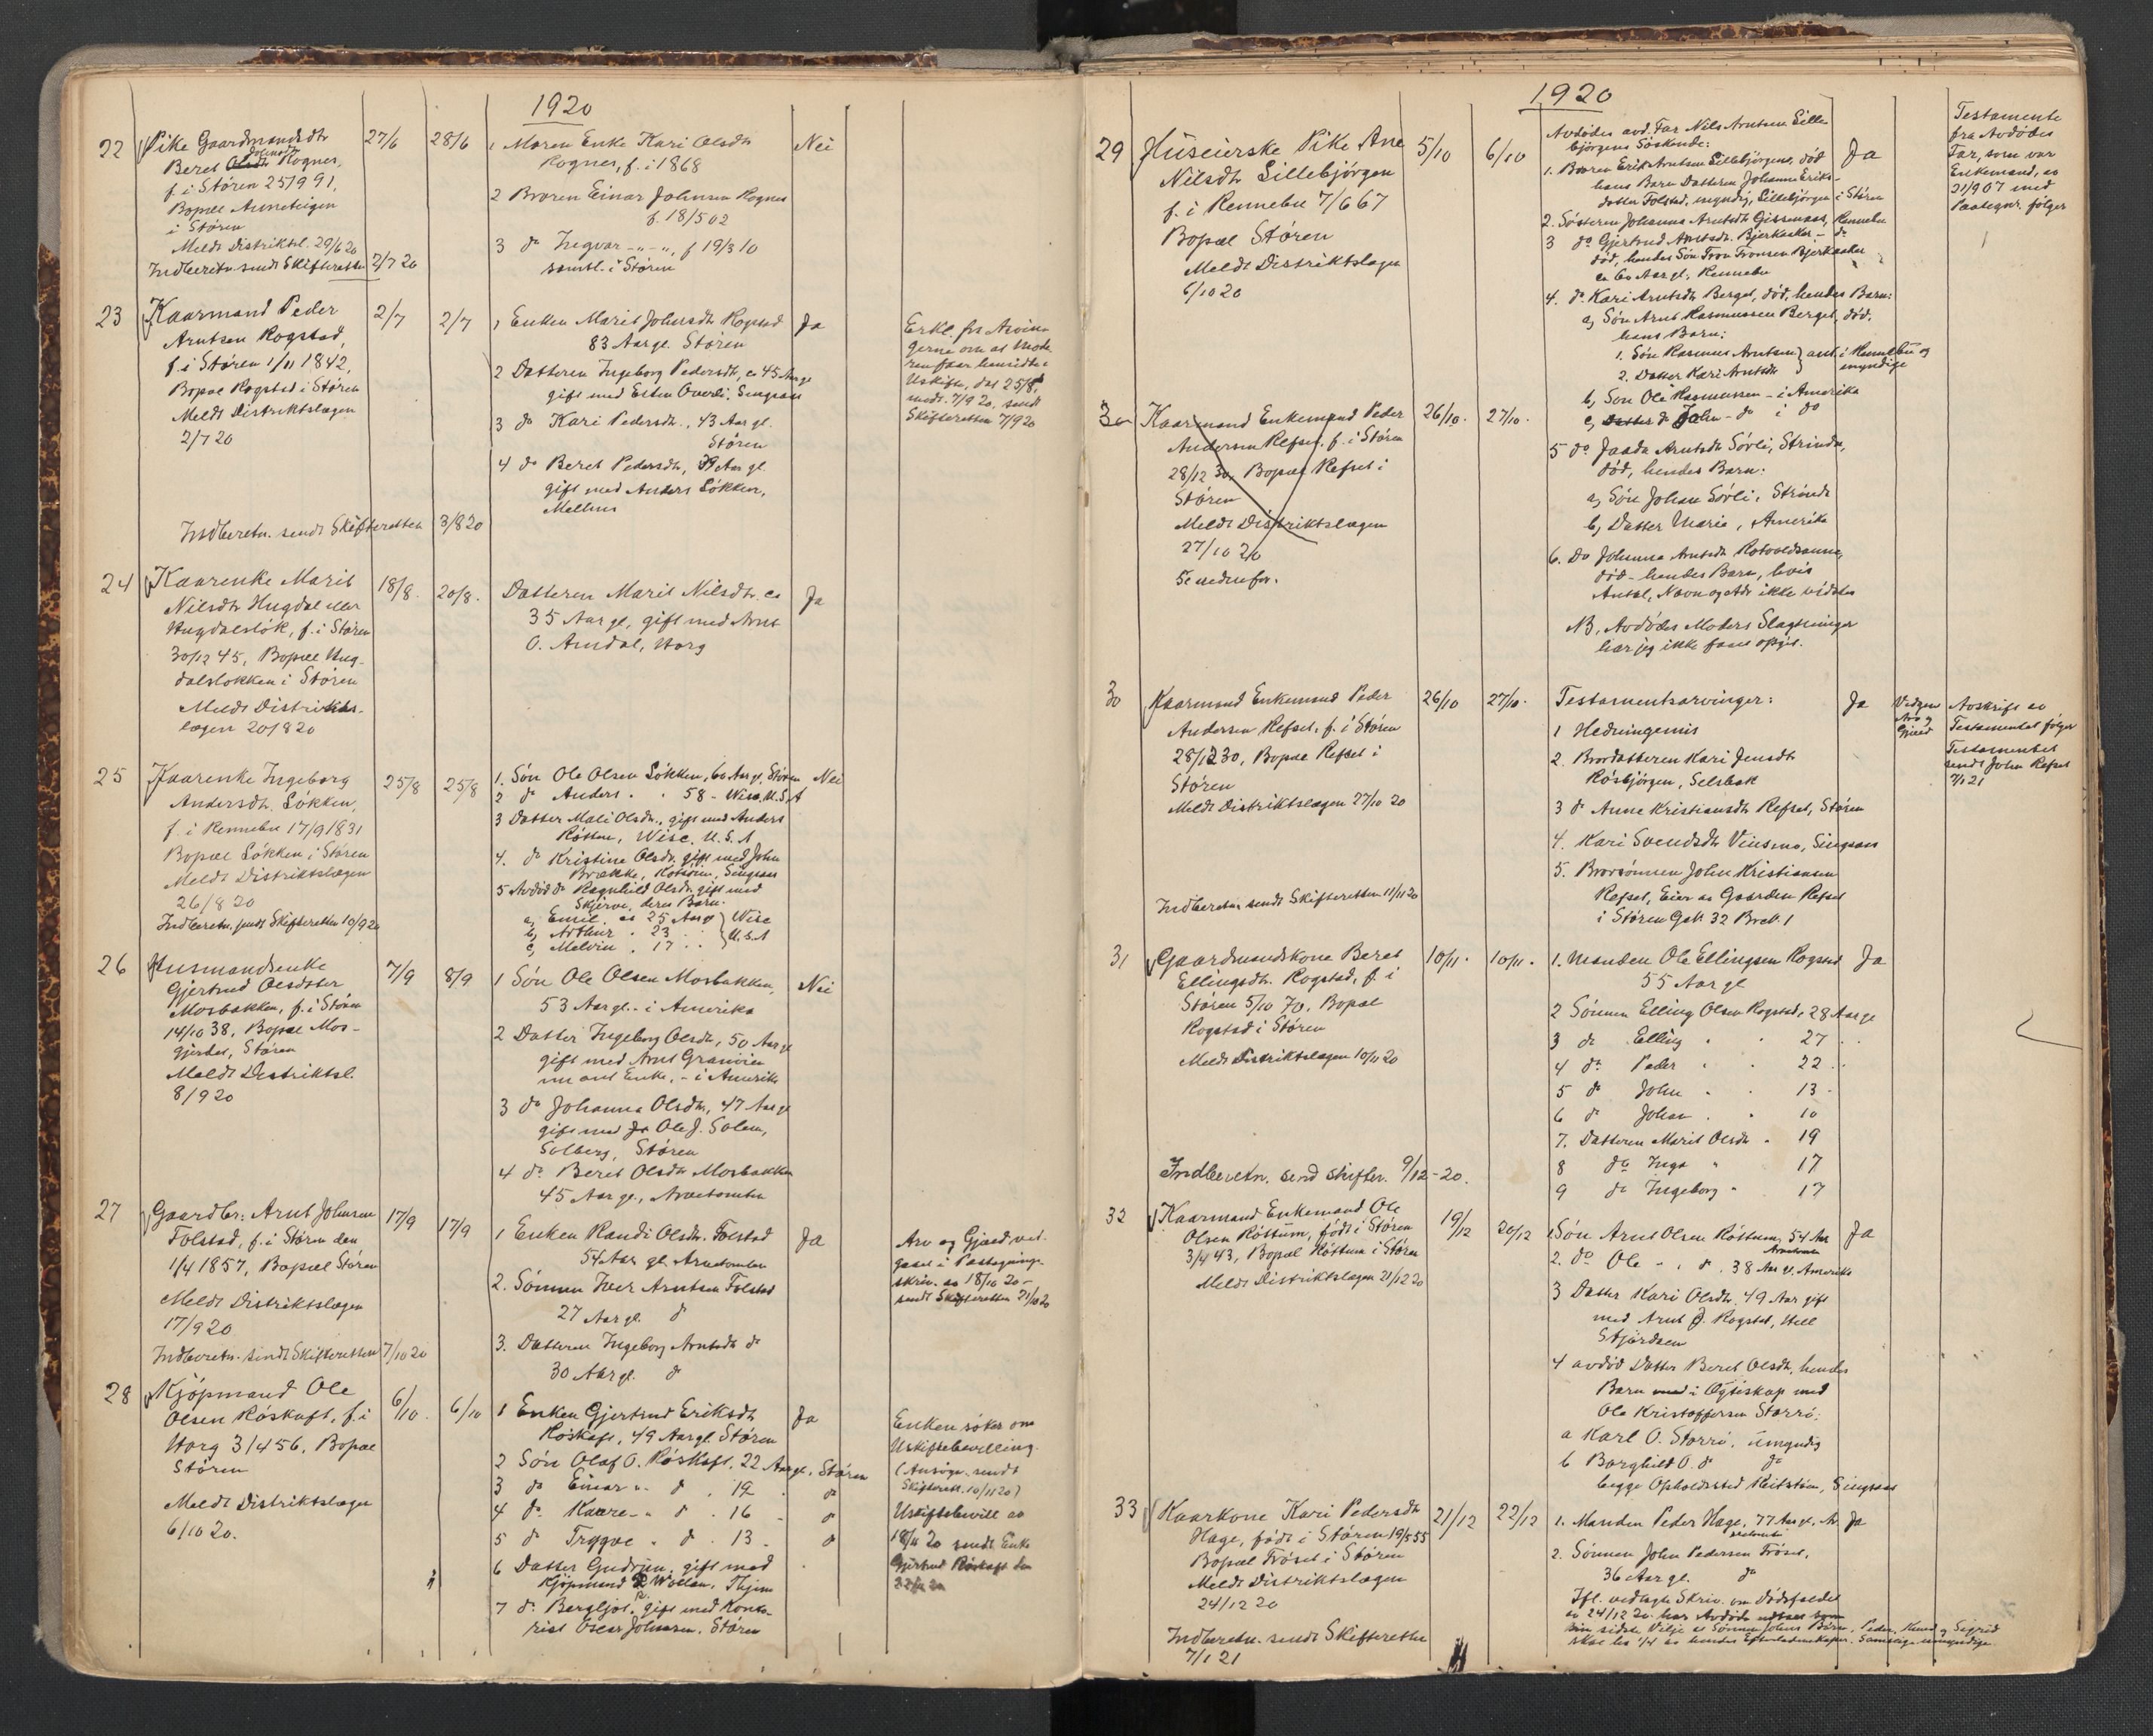 1920
22 Pike Gaardmandsdtr
Beret Olsdtr Johnsdtr Rognes,
f. i Støren 25/9 91,
Bopæl
i Støren
Meldt Distriktsl. 29/6 20
Indberetn. sendt Skifteretten 2/7 20
27/6 28/6
1 Moren Enke Kari Olsdtr
Rognes, f. i 1868
2 Broren Einar Johnsen Rognes
f. 18/5 02
3 do Ingvar -"-"-, f 19/3 10
samtl. i Støren
Nei
23 Kaarmand Peder
Arntsen Rogstad,
f. i Støren 1/11 1842,
Bopæl Rogstad i Støren
Meldt Distriktslægen
2/7 20
Indberetn. sendt Skifteretten 3/8 20
2/7 2/7
1 Enken Marit Johnsdtr Rogstad
83 Aar gl. Støren
2 Datteren Ingeborg Pedersdtr, ca 45 Aar gl
gift med Esten Overli, Singsaas
3 do Kari Pedersdtr., 43 Aar gl.
Støren
4 do Beret Pedersdtr, 39 Aar gl.
gift med Anders Løkken,
Melhus
Ja
Erkl. fra Arvin-
gerne om at Mode-
ren faar hensidde i
Uskifte, dat 25/8,
modt. 7/9 20, sendt
Skifteretten 7/9 20
24 Kaarenke Marit
Nilsdtr Hugdal eller
Hugdalsløk, f. i Støren
30/12 45, Bopæl Hug-
dalsløkken i Støren
Meldt Distrikts-
lægen 20/8 20
18/8. 20/8.
Datteren Marit Nilsdtr. ca
35 Aar gl, gift med Arnt
O. Amdal, Horg
Ja
25 Kaarenke Ingeborg
Andersdtr. Løkken,
f. i Rennebu 17/9 1831
Bopæl Løkken i Støren
Meldt Distriktslægen
26/8 20
Indberetn. sendt Skifteretten 10/9 20
25/8 25/8
1. Søn Ole Olsen Løkken, 60 Aar gl, Støren
2 do Anders " " 58 - Wisc. U.S.A
3 Datter Mali Olsdtr., gift med Anders
Wisc. U.S.A
4. do Kristine Olsdtr. gift med John
Brække, Singsaas
5 Avdød do Ragnhild Olsdtr gift med
Skjerve, deres Barn:
a, Emil, ca 25 Aar gl } Wisc
b, Arthur " 23 " " U.S.A
c, Melvin " 17 " "
Nei
26 Husmandsenke
Gjertrud Olsdatter
Mosbakken, f. i Støren
14/10 38, Bopæl Mos-
gjerdet, Støren
Meldt Distriktsl.
8/9 20
7/9 8/9
1 Søn Ole Olsen Mosbakken,
53 Aar gl. - i Amerika
2 Datter Ingeborg Olsdtr, 50 Aar gl
gift med Arnt Granøien
nu ant Enke, - i Amerika
3 do Johanna Olsdtr, 47 Aar gl
gift med Ole J. Solem,
Solberg, Støren
4 do. Beret Olsdtr Mosbakken
45 Aar gl., Arvetomten
Nei
27 Gaardbr. Arnt Johnsen
Folstad, f. i Støren den
1/4 1857, Bopæl Støren
Meldt Distriktslægen
17/9 20
Indberetn. sendt Skifteretten 7/10 20
17/9 17/9
1 Enken Randi Olsdtr. Folstad
54 Aar gl. Arvetomten
2. Sønnen Iver Arntsen Folstad
27 Aar gl. do
3. Datteren Ingeborg Arntsdtr do
30 Aar gl. do
Ja
Arv og Gjæld ved-
gaaet i Paategnings-
skriv. av 18/10 20 -
sendt Skifteretten 21/10 20
28 Kjøpmand Ole
Olsen Røskaft, f. i
Horg 3/4 56, Bopæl
Støren
Meldt Distriktslægen
6/10 20.
6/10. 6/10
1 Enken Gjertrud Eriksdtr
Røskaft, 49 Aar gl. Støren
2 Søn Olaf O. Røskaft, 22 Aar gl. Støren
3 do Einar " - do . 19 - do
4 do. Kaare - " do . 16 - do
5 do Trygve " do . 13 . do
6 Datter Gudrun, gift med
Kjøpmand Woldan, Thjem
7 do. Bergljot, gift med Konto-
rist Oscar Johnsen, Støren
Ja
Enken søker om
Uskiftebevilling.
(Ansøgn. sendt
Skifterett. 10/11 20)
Uskiftebevill av
18/11 20 sendt Enke
Gjertrud Røskaft den
1920
29 Huseierske Pike Ane
Nilsdtr Lillebjørgen
f. i Rennebu 7/6 67
Bopæl Støren
Meldt Distriktslægen
6/10 20
5/10 6/10
Avdødes avd. Far Nils Arntsen Lille-
bjørgens Søskende:
1. Broren Erik Arntsen Lillebjørgen, død
hans Barn Datteren Johanne Eriks-
datter Folstad, myndig, Lillebjørgen i Støren
2. Søsteren Johanna Arntsdtr Gissenaas, Rennebu
3 do Gjertrud Arntsdtr. Bjerkaaker - do
død, hendes Søn Tron Tronsen Bjerkaaker
ca 60 Aar gl. Rennebu
4. do. Kari Arntsdtr Berget, død, hendes Barn:
a, Søn Arnt Rasmussen Berget, død,
hans Barn:
1. Søn Rasmus Arntsen } ant. i Rennebu og
2. Datter Kari Arntsdtr myndige
b, Søn Ole Rasmussen - i Amerika
c, Datter do John - do i do
5 do. Arntsdtr Sørli, Strinda,
død, hendes Barn:
a, Søn Johan Sørli, Strinda
b, Datter Marie, Amerika
6. Do Johanna Arntsdtr
død - hendes Barn, hvis
Antal, Navn og Adr ikke vides
NB, Avdødes Moders Slægtninger
har jeg ikke faaet opgit.
Ja
Testamente
fra Avdødes
Far, som var
Enkemand, av
21/9 07 med
Paategnr. følger
30 Kaarmand Enkemand Peder
Andersen Refset, f. i Støren
28/12 30, Bopæl Refset i
Støren
Meldt Distriktslægen
27/10 20
Se nedenfor.
26/10. 27/10.
30 Kaarmand Enkemand Peder
Andersen Refset, f. i Støren
28/12 30, Bopæl Refset i
Støren
Meldt Distriktslægen 27/10 20
Indberetn. sendt Skifteretten 11/11 20
26/10 27/10.
Testamentsarvinger:
1 Hedningemis
2. Brordatteren Kari Jensdtr
Røsbjørgen, Selsbak
3 do Anne Kristiansdtr Refset, Støren
4. Kari Svendsdtr Vinsmo, Singsaas
5. Brorsønnen John Kristiansen
Refset, Eier av Gaarden Refset
i Støren G.N. 32 Br.N. 1
Ja
Vedgaar
Arv og
Gjæld
Avskrift av
Testamentet følger
Testamentet
sendt John Refset
7/1 21
31 Gaardmandskone Beret
Ellingsdtr. Rogstad, f. i
Støren 5/10 70, Bopæl
Rogstad i Støren
Meldt Distriktslægen 10/11 20
Indberetn. send skifter. 9/12 - 20.
10/11. 10/11.
1. Manden Ole Ellingsen Rogstad
55 Aar gl
2 Sønnen Elling Olsen Rogstad, 28 Aar gl
3 do Elling " " 27 " "
4 do. Peder " " 22 " "
5 do John " " 13 "
6 do Johan " " 10
7. Datteren Marit Olsdtr " 19
8 do Inga " 17
9 do Ingeborg " 17
Ja
32 Kaarmand Enkemand Ole
Olsen Røttum, født i Støren
3/4 43, Bopæl Røttum i Støren
Meldt Distriktslægen 21/12 20
19/12 20/12
1 Søn Arnt Olsen Røttum, 54 Aar
Arvetomten
2. do Ole - " do. 38 Aar gl. Amerika
3 Datter Kari Olsdtr. 49 Aar gift
med Arnt J. Rogstad, Hell
Stjørdalen
4 avdød Datter Beret Olsdtr, hendes
Barn med i Ægteskap med
Ole Kristoffersen Storrø:
a Karl O. Storrø, umyndig
b Borghild O. do do
begge Opholdssted Reitstøen, Singsaas
Ja
33 Kaarkone Kari Pedersdtr
Hage, født i Støren 19/5 55
Bopæl Frøset i Støren
Meldt Distriktslægen
24/12 20
Indberetn. sendt Skifteretten
7/1 21
21/12 22/12
1. Manden Peder Hage, 77 Aar gl. Ar-
vetomten
2. Sønnen John Pedersen Frøset,
36 Aar gl. do
Ifl. vedlagte Skriv. om Dødsfaldet
av 24/12 20 har Avdøde udtalt som
sin sidste Vilje at Sønnen Johns Børn, Peder, Knud og Sigrid
skal ha 1/4 av hendes Efterladenskaper. Samtlige umyndige.
Ja